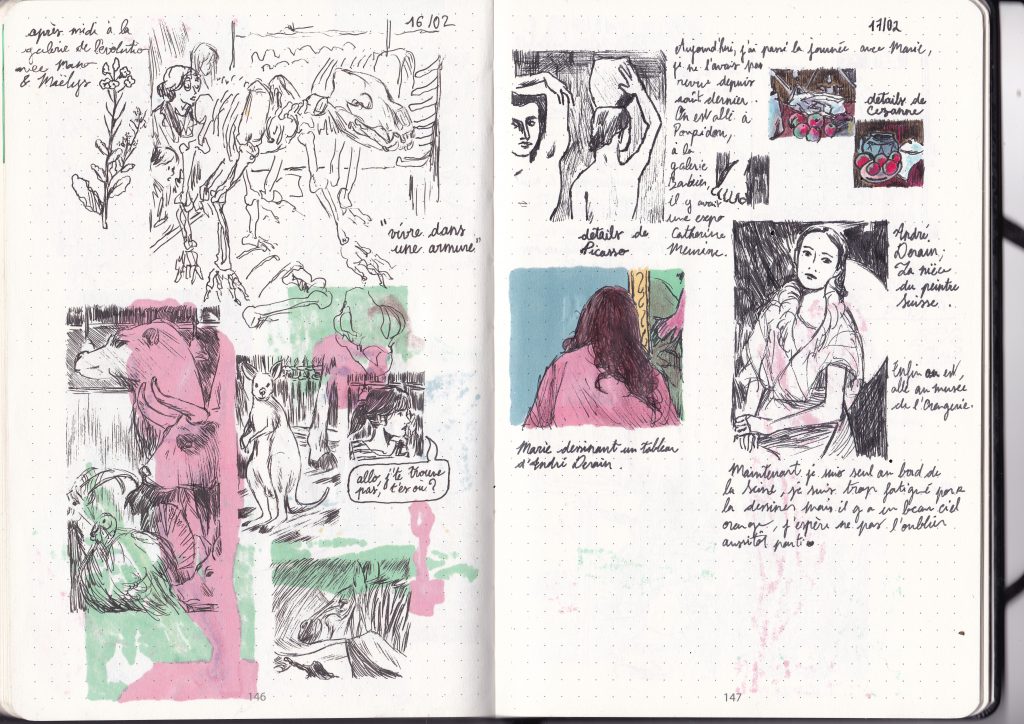 16/02
après midi à la
galerie de l'évolutio
avec Mano
& Maëlys
"vivre dans
une armure"
allo, j'te trouve
pas, t'es où?
146
17/02
Aujourd'hui, j'ai passé la journée avec Marie,
je ne l'avais pas
revue depuis
aout dernier.
On est allé à
Pompidou,
à la
galerie
il y avait
une expo
Catherine
Meurisse.
détails de
Picasso
détails de
Cezanne
André
Derain,
La nièce
du peintre
suisse.
Enfin on est,
allé au musée
de l'Orangerie.
Marie dessinant un tableau
d'André Derain.
Maintenant je suis seul au bord de
la seine, je suis trop fatigué pour
la dessiner mais il y a un beau ciel
orange, j'espère ne pas l'oublier
aussitôt parti
147